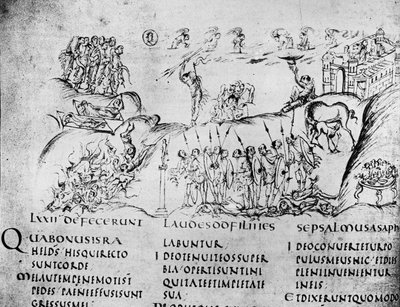 LXXII DEFECERUNT LAUDES DD FILII IES SEPSALMUS ASAPH
QUABONUSISRA
HELDS HISQUIRECTO
SUNTCORDE
MEIAUTEMPENEMOTIST
PEDES PAENEEFFUSISUNT
GRESSUSMEI
LABUNTUR
IDEOTENUITEOSSUPER
BIA OPERTISUNTINI
QUITATEETIMPIETATE
SUA
IDEOCONUERTETURPO
PULUSMEUSHIC ETDIES
PLENIINUENIENTUR
INEIS
ETDIXERUNTQUOMODO